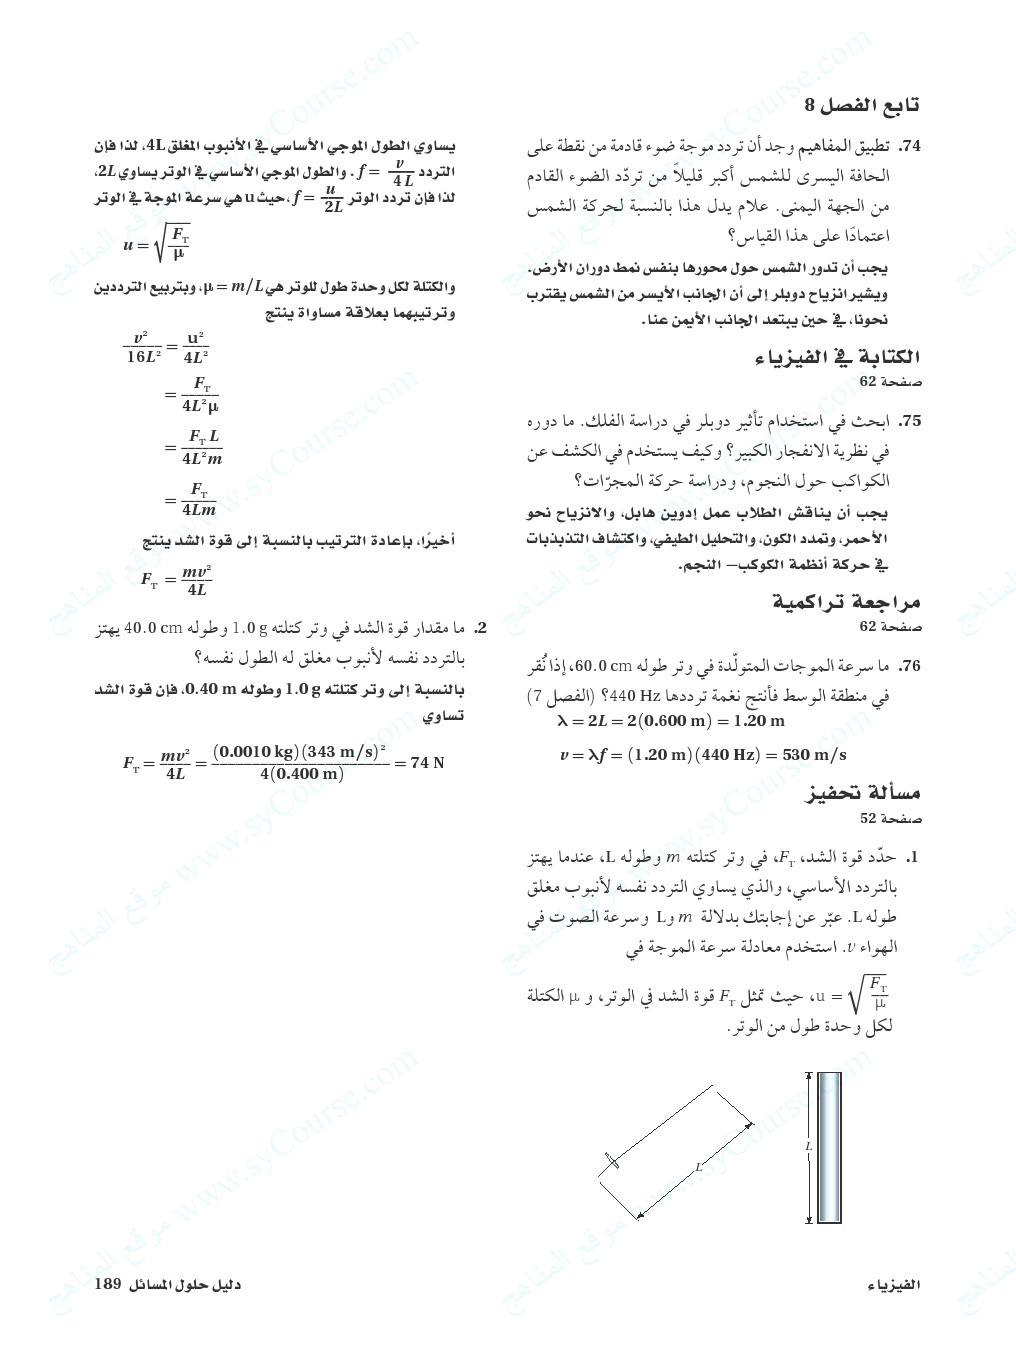 تابع الفصل 8
74. تطبيق المفاهيم وجد أن تردد موجة ضوء قادمة من نقطة على
الحافة اليسرى للشمس أكبر قليلاً من تردّد الضوء القادم
من الجهة اليمنى. علام يدل هذا بالنسبة لحركة الشمس
اعتمادًا على هذا القياس؟
يجب أن تدور الشمس حول محورها بنفس نمط دوران الأرض.
ويشير انزياح دوبلر إلى أن الجانب الأيسر من الشمس يقترب
نحونا، في حين يبتعد الجانب الأيمن عنا.
الكتابة في الفيزياء
صفحة 62
75. ابحث في استخدام تأثير دوبلر في دراسة الفلك. ما دوره
في نظرية الانفجار الكبير؟ وكيف يستخدم في الكشف عن
الكواكب حول النجوم، ودراسة حركة المجرّات؟
يجب أن يناقش الطلاب عمل إدوين هابل، والانزياح نحو
الأحمر، وتمدد الكون، والتحليل الطيفي، واكتشاف التذبذبات
في حركة أنظمة الكوكب– النجم.
مراجعة تراكمية
صفحة 62
76. ما سرعة الموجات المتولّدة في وتر طوله 60.0 cm، إذا نُقر
في منطقة الوسط فأنتج نغمة ترددها 440 Hz؟ (الفصل 7)
λ = 2L = 2(0.600 m) = 1.20 m
v = λf = (1.20 m)(440 Hz) = 530 m/s
مسألة تحفيز
صفحة 52
1. حدّد قوة الشد، F_T، في وتر كتلته m وطوله L، عندما يهتز
بالتردد الأساسي، والذي يساوي التردد نفسه لأنبوب مغلق
طوله L. عبّر عن إجابتك بدلالة m وL وسرعة الصوت في
الهواء v. استخدم معادلة سرعة الموجة في
u = √(F_T/μ)، حيث تمثل F_T قوة الشد في الوتر، و μ الكتلة
لكل وحدة طول من الوتر.
L
L
يساوي الطول الموجي الأساسي في الأنبوب المغلق 4L، لذا فإن
التردد f = v/4L. والطول الموجي الأساسي في الوتر يساوي 2L،
لذا فإن تردد الوتر f = u/2L، حيث u هي سرعة الموجة في الوتر
u = √(F_T/μ)
والكتلة لكل وحدة طول للوتر هي μ = m/L، وبتربيع الترددين
وترتيبهما بعلاقة مساواة ينتج
v²/16L² = u²/4L²
= F_T/4L²μ
= F_T L/4L²m
= F_T/4Lm
أخيرًا، بإعادة الترتيب بالنسبة إلى قوة الشد ينتج
F_T = mv²/4L
2. ما مقدار قوة الشد في وتر كتلته 1.0 g وطوله 40.0 cm يهتز
بالتردد نفسه لأنبوب مغلق له الطول نفسه؟
بالنسبة إلى وتر كتلته 1.0 g وطوله 0.40 m، فإن قوة الشد
تساوي
F_T = mv²/4L = (0.0010 kg)(343 m/s)²/4(0.400 m) = 74 N
الفيزياء
دليل حلول المسائل 189
موقع المناهج www.syCourse.com